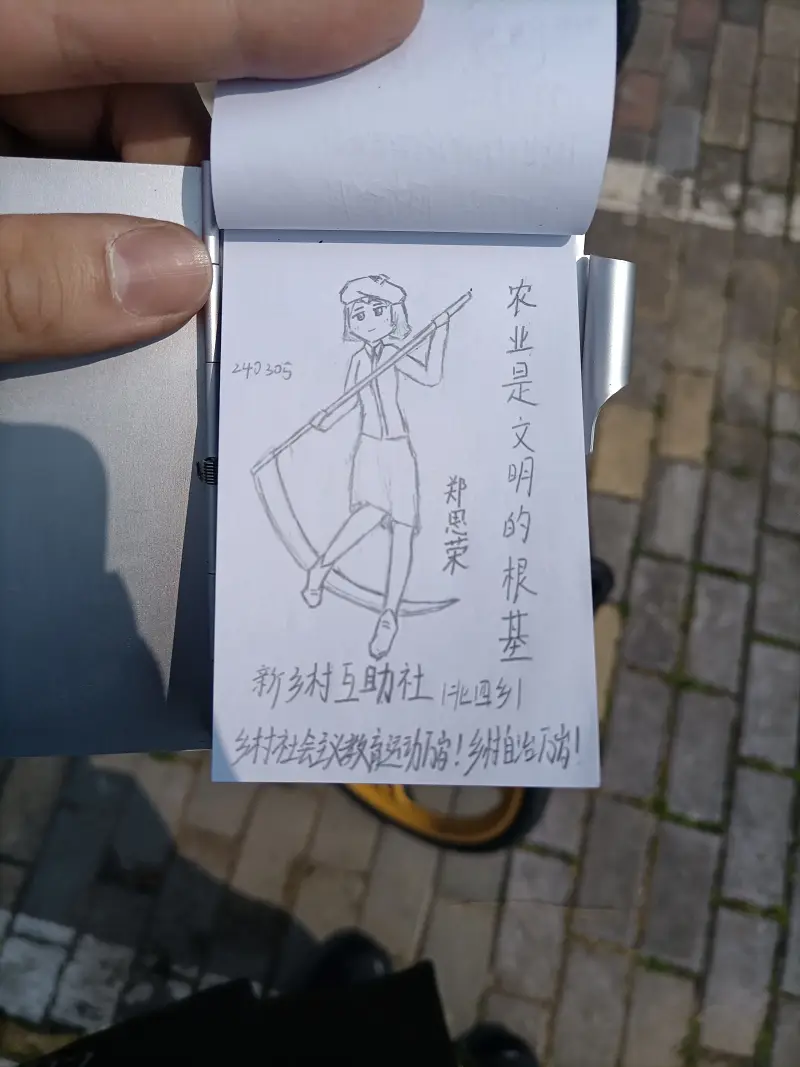 农业是文明的根基
240305
郑思荣
新乡村互助社
乡村社会主义教育运动万岁！乡村自治万岁！